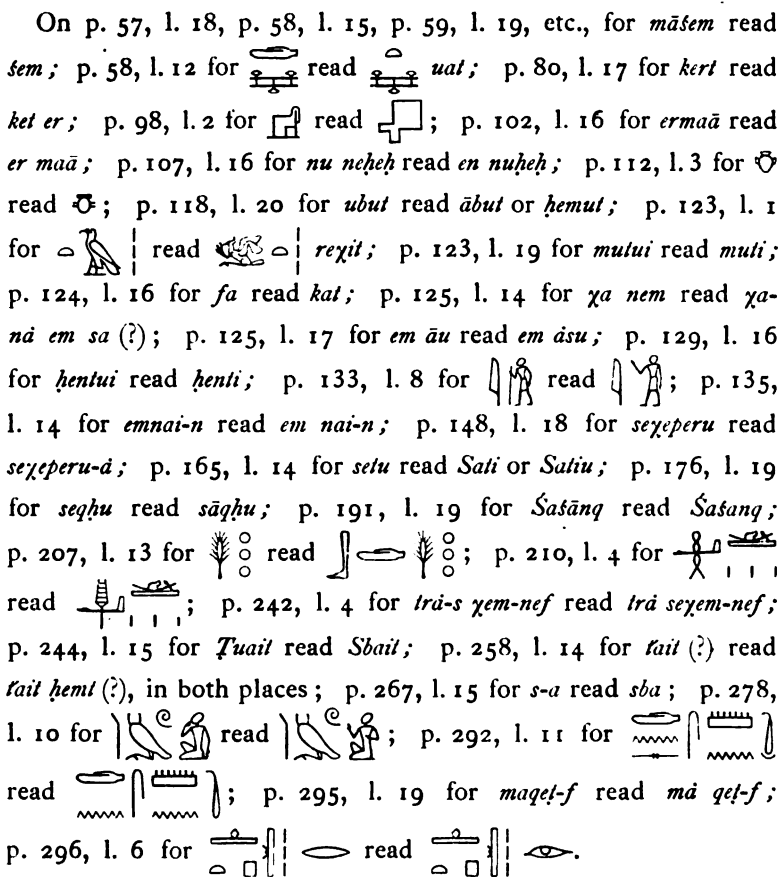 On p. 57, l. 18, p. 58, l. 15, p. 59, l. 19, etc., for māśem read
śem; p. 58, l. 12 for read uat; p. 80, l. 17 for kert read
ket er; p. 98, l. 2 for read ; p. 102, l. 16 for ermaā read
er maā; p. 107, l. 16 for nu neḥeḥ read en nuḥeḥ; p. 112, l. 3 for
read ; p. 118, l. 20 for ubut read ābut or ḥemut; p. 123, l. 1
for read reχit; p. 123, l. 19 for mutui read muti;
p. 124, l. 16 for fa read kat; p. 125, l. 14 for χa nem read χa-
nȧ em sa (?); p. 125, l. 17 for em āu read em ȧsu; p. 129, l. 16
for ḥentui read ḥenti; p. 133, l. 8 for read ; p. 135,
l. 14 for emnai-n read em nai-n; p. 148, l. 18 for seχeperu read
seχeperu-ȧ; p. 165, l. 14 for setu read Sati or Satiu; p. 176, l. 19
for seqḥu read sāqḥu; p. 191, l. 19 for Śaśānq read Śaśanq;
p. 207, l. 13 for read ; p. 210, l. 4 for
read ; p. 242, l. 4 for trȧ-s χem-nef read trȧ seχem-nef;
p. 244, l. 15 for Ṭuait read Sbait; p. 258, l. 14 for t́ait (?) read
t́ait ḥemt (?), in both places; p. 267, l. 15 for s-a read sba; p. 278,
l. 10 for read ; p. 292, l. 11 for
read ; p. 295, l. 19 for maqeṭ-f read mȧ qeṭ-f;
p. 296, l. 6 for read .